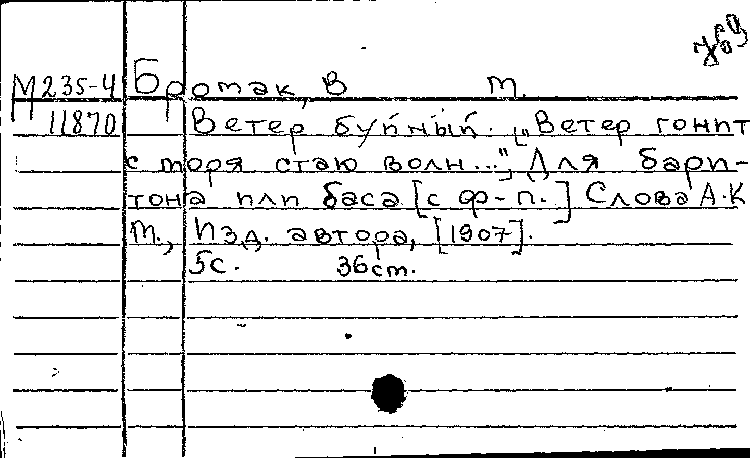 769
М 235-4 Бромак, В т.
11870 Ветер буйный. ["Ветер гонит
с моря стаю волн..."] Для бари-
тона или баса [с ф-п.] Слова А.К
М., Изд. автора, [1907].
5с. 36 ст.